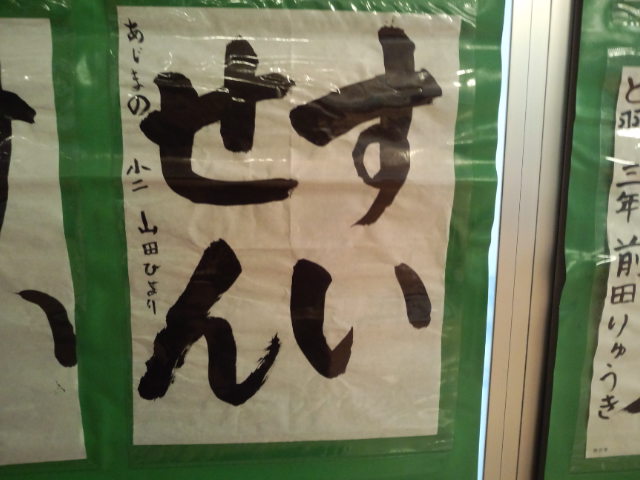 すい
せん
あじまの 小二 山田ひより
と羽 三年 前田りゅうき